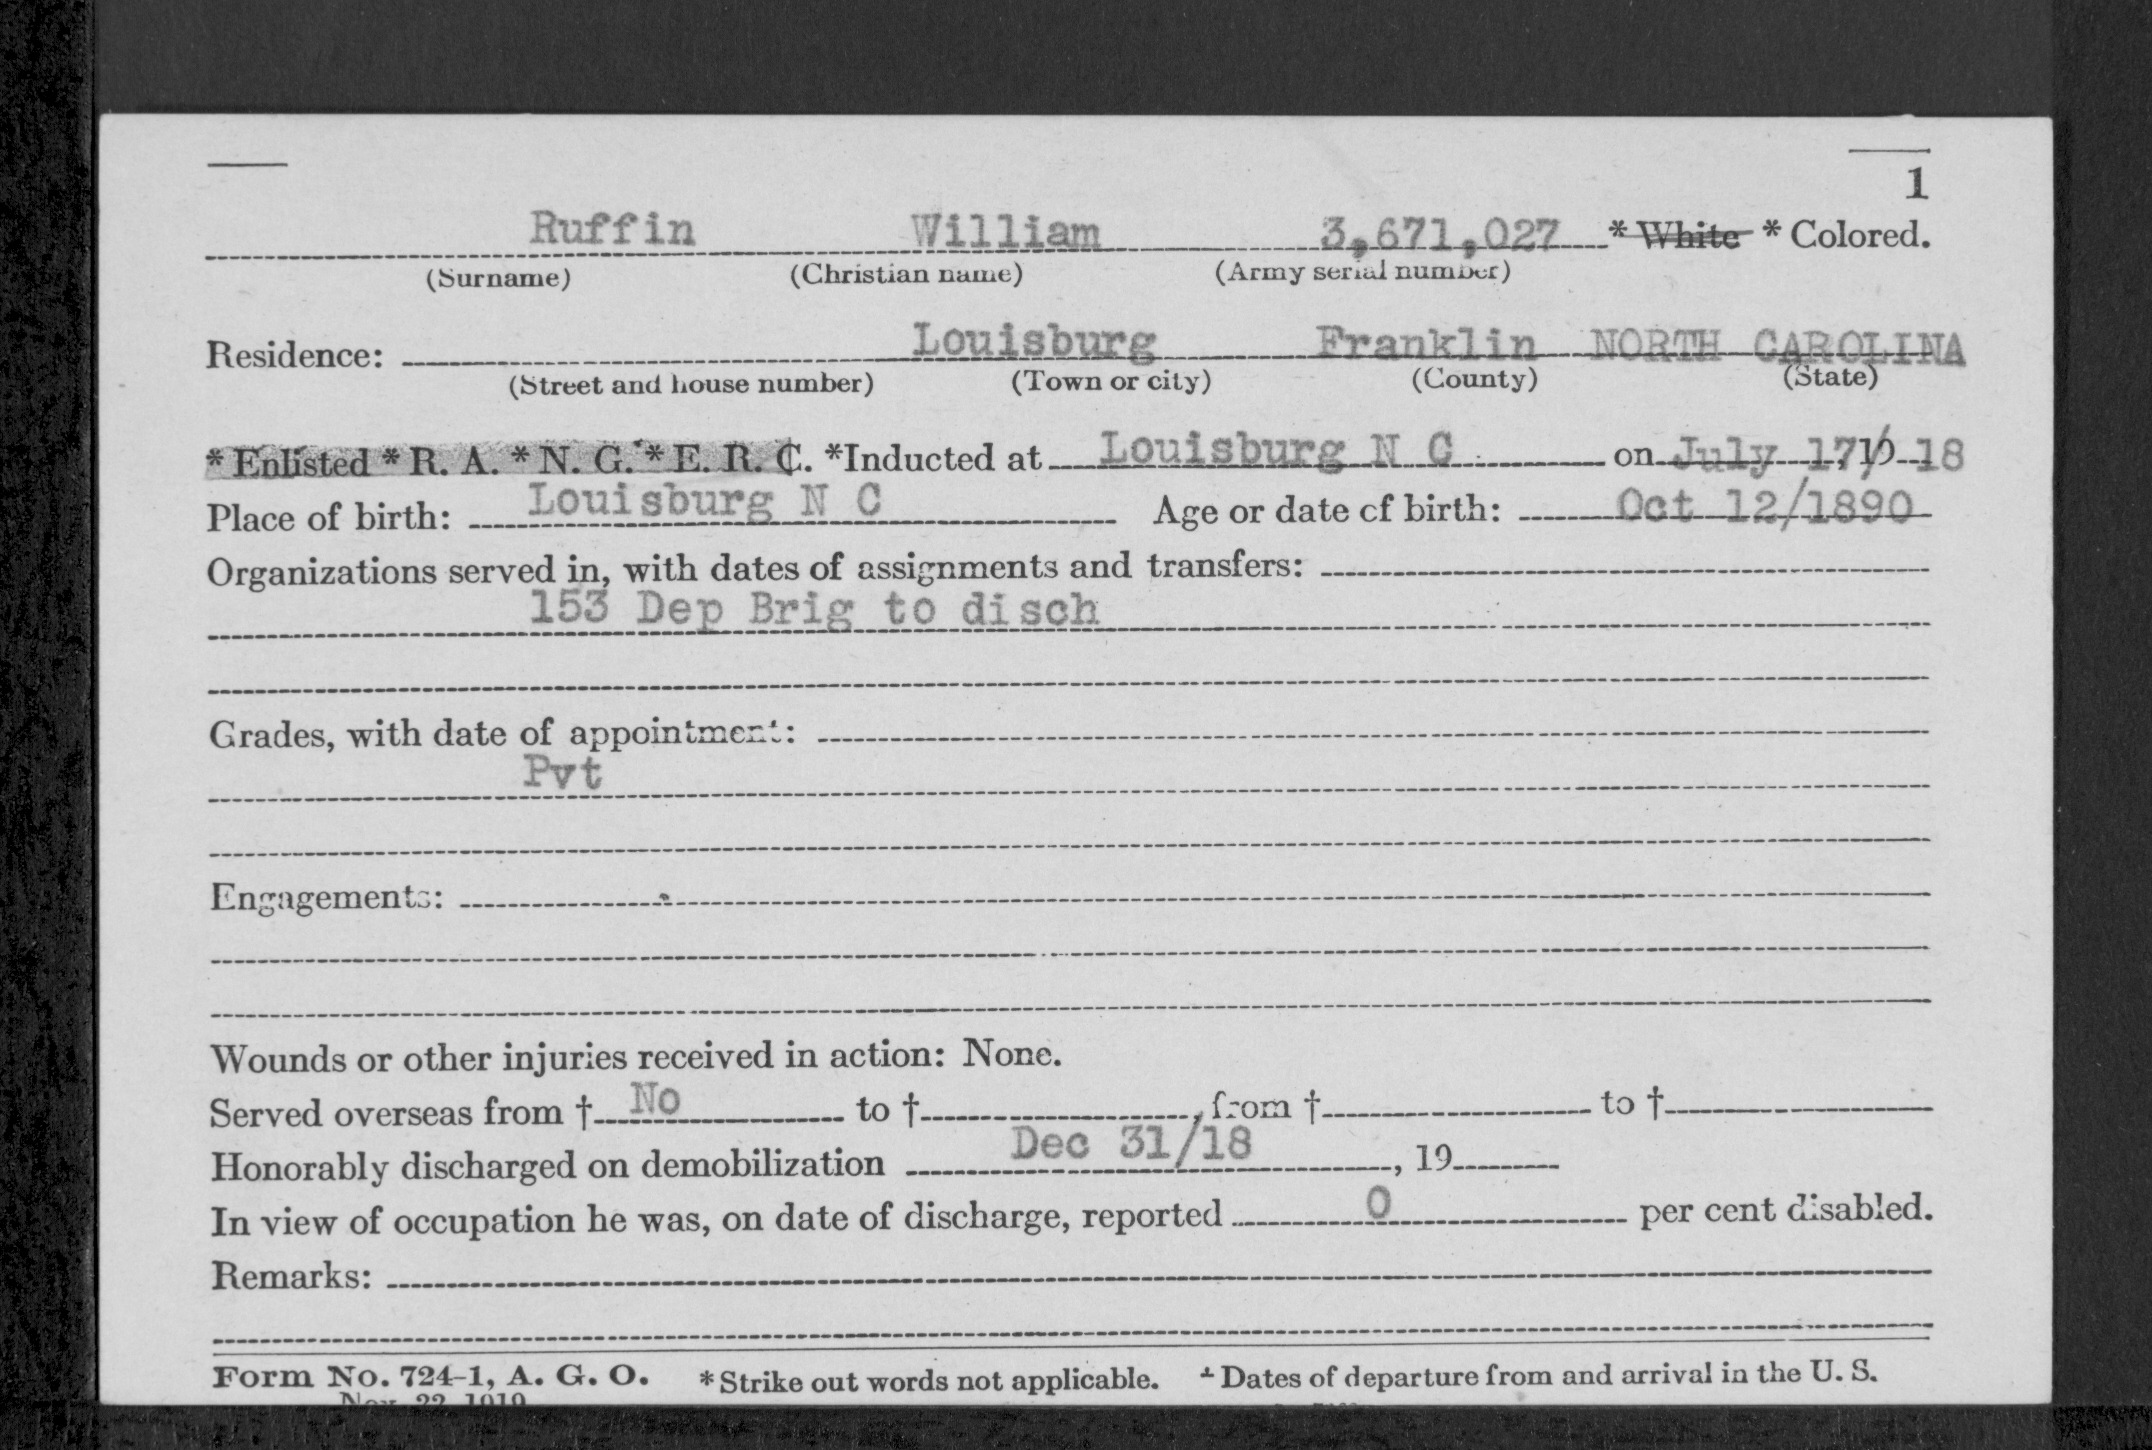 1
Ruffin William 3,671,027 * White * Colored.
(Surname) (Christian name) (Army serial number)
Residence: Louisburg Franklin NORTH CAROLINA
(Street and house number) (Town or city) (County) (State)
* Enlisted * R. A. * N. G. * E. R. C. *Inducted at Louisburg N C on July 17/, 19 18
Place of birth: Louisburg N C Age or date of birth: Oct 12/1890
Organizations served in, with dates of assignments and transfers:
153 Dep Brig to disch
Grades, with date of appointment:
Pvt
Engagements:
Wounds or other injuries received in action: None.
Served overseas from † No to †, from † to †
Honorably discharged on demobilization Dec 31/18, 19
In view of occupation he was, on date of discharge, reported 0 per cent disabled.
Remarks:
Form No. 724-1, A. G. O. * Strike out words not applicable. † Dates of departure from and arrival in the U. S.
Nov. 22, 1919